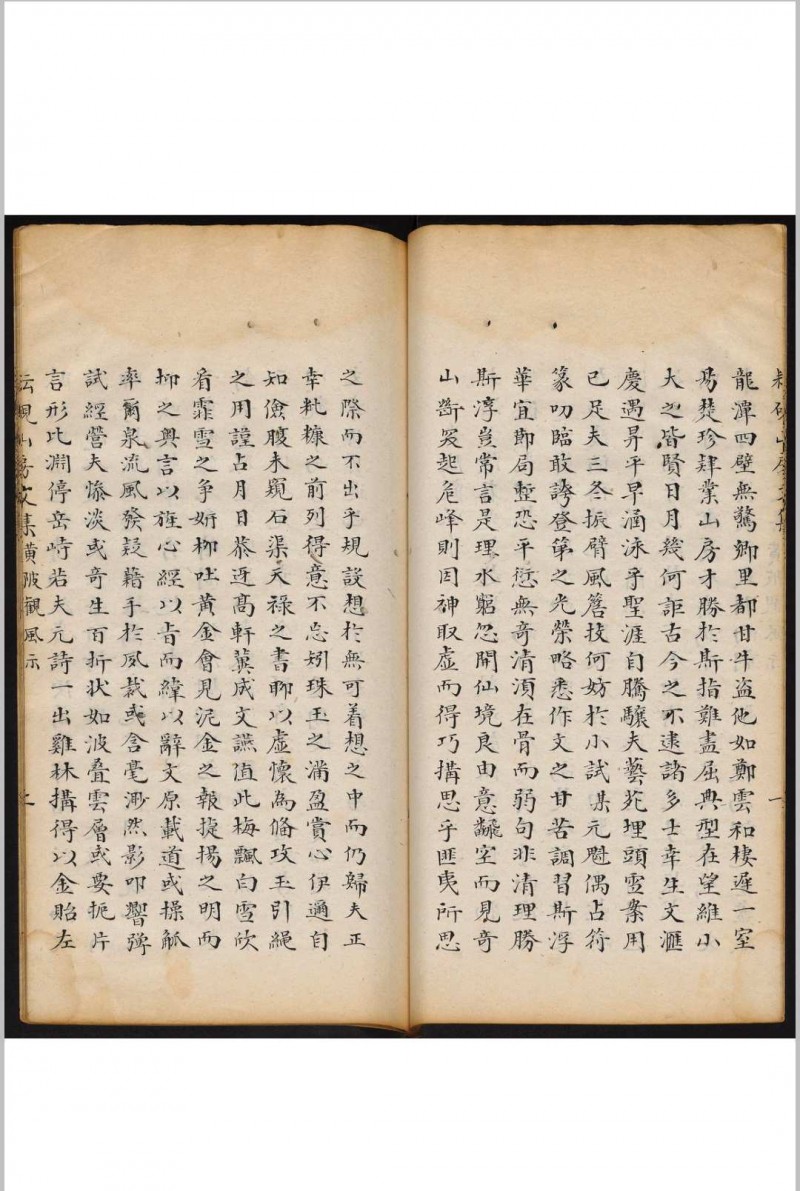 龍潭四壁無驚鄉里都甘牛盗他如鄭雲和棲遲一室
爲楚珍肄業山房才勝於斯指難盡屈典型在望維小
大之皆賢日月幾何詎古今之不逮諸多士幸生文滙
慶遇昇平早涵泳乎聖涯自騰驤夫藝苑埋頭雪案用
已足夫三冬振臂風簷技何妨於小試某元魁偶占符
篆叨臨敢誇登第之光榮略悉作文之甘苦調習斯浮
華宜即局蹔恐平愆無奇清須在骨而弱句非清理勝
斯淳豈常言是理水窮忽開仙境良由意翻空而見奇
山斷突起危峰則因神取虛而得巧搆思乎匪夷所思
之際而不出乎規設想於無可着想之中而仍歸夫正
幸粃糠之前列得意不忘矧珠玉之滿盈賞心伊邇自
知儉腹未窺石渠天禄之書聊以虛懷為備攻玉引繩
之用謹占月日恭迓高軒冀成文讌值此梅飄白雪欣
看霏雪之争妍柳吐黃金會見泥金之報捷揚之明而
抑之奥言以旌心經以旨而緯以辭文原載道或操觚
率爾泉流風發疑藉手於夙裁或含毫渺然影叩響彈
試經營夫慘淡或奇生百折状如波叠雲層或要扼片
言形比淵停岳峙若夫元詩一出雞林搆得以金貽左
山房文集 黃陂觀風示